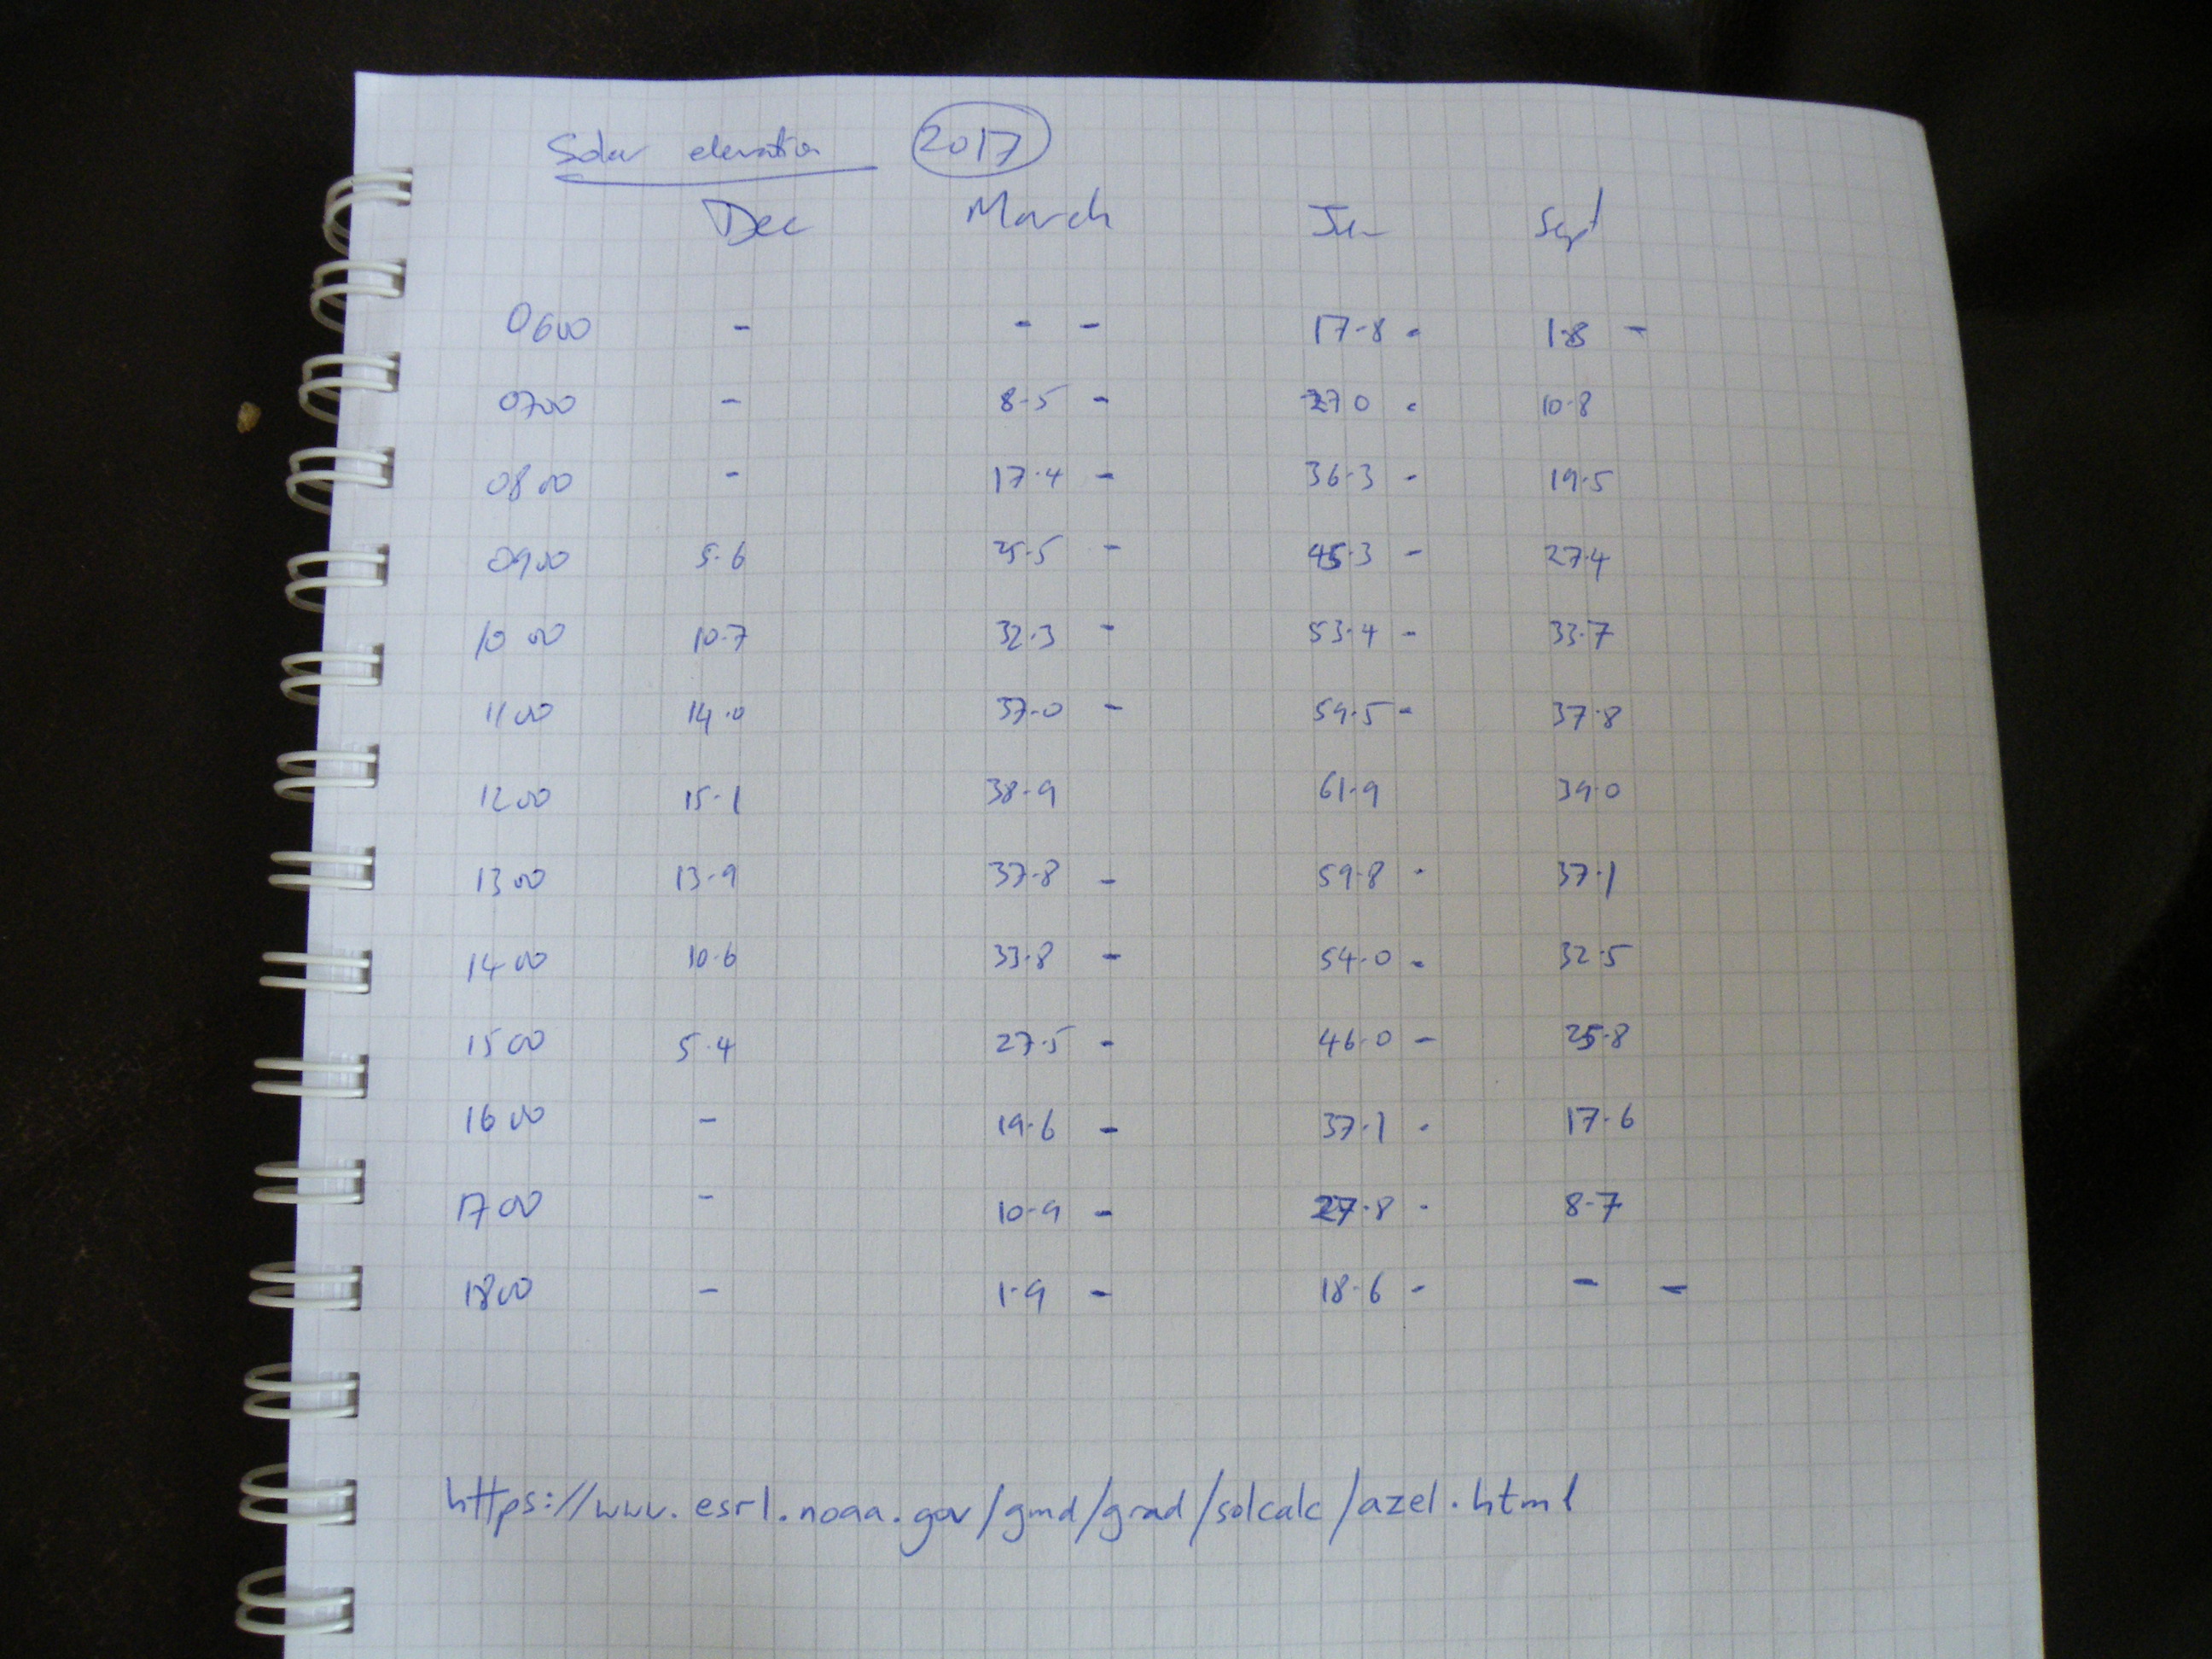 Solar elevation 2017
Dec March Jun Sept
0600 - - - 17.8 - 1.8 -
0700 - 8.5 - 27.0 - 10.8
0800 - 17.4 - 36.3 - 19.5
0900 5.6 25.5 - 45.3 - 27.4
1000 10.7 32.3 - 53.4 - 33.7
1100 14.0 37.0 - 59.5 - 37.8
1200 15.1 38.9 61.9 39.0
1300 13.9 37.8 - 59.8 - 37.1
1400 10.6 33.8 - 54.0 - 32.5
1500 5.4 27.5 - 46.0 - 25.8
1600 - 19.6 - 37.1 - 17.6
1700 - 10.9 - 27.8 - 8.7
1800 - 1.9 - 18.6 - - -
https://www.esrl.noaa.gov/gmd/grad/solcalc/azel.html